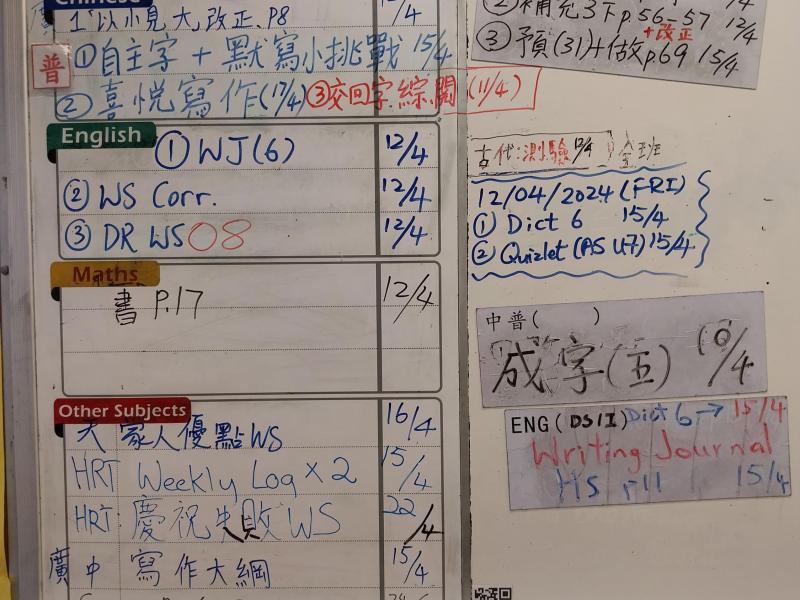 Chinese
廣 1 以小見大,改正.P8 /4
普 ①自主字+默寫小挑戰 15/4
②喜悅寫作(17/4)③交回字.綜.閱(11/4)
English
①WJ(6) 12/4
②WS Corr. 12/4
③DR WS08 12/4
Maths
書 P.17 12/4
Other Subjects
大 家人優點WS 16/4
HRT Weekly Log×2 15/4
HRT 慶祝失敗WS 22/4
廣中 寫作大綱 15/4
②補充3下p.56-57 12/4
+改正
③預(31)+做p.69 15/4
古代:測驗12/4 全班
12/04/2024(FRI)
①Dict 6 15/4
②Quizlet(AS U7)15/4
中普( )
成字(五) 10/4
ENG(DSII)Dict 6→15/4
Writing Journal
HS p11 15/4